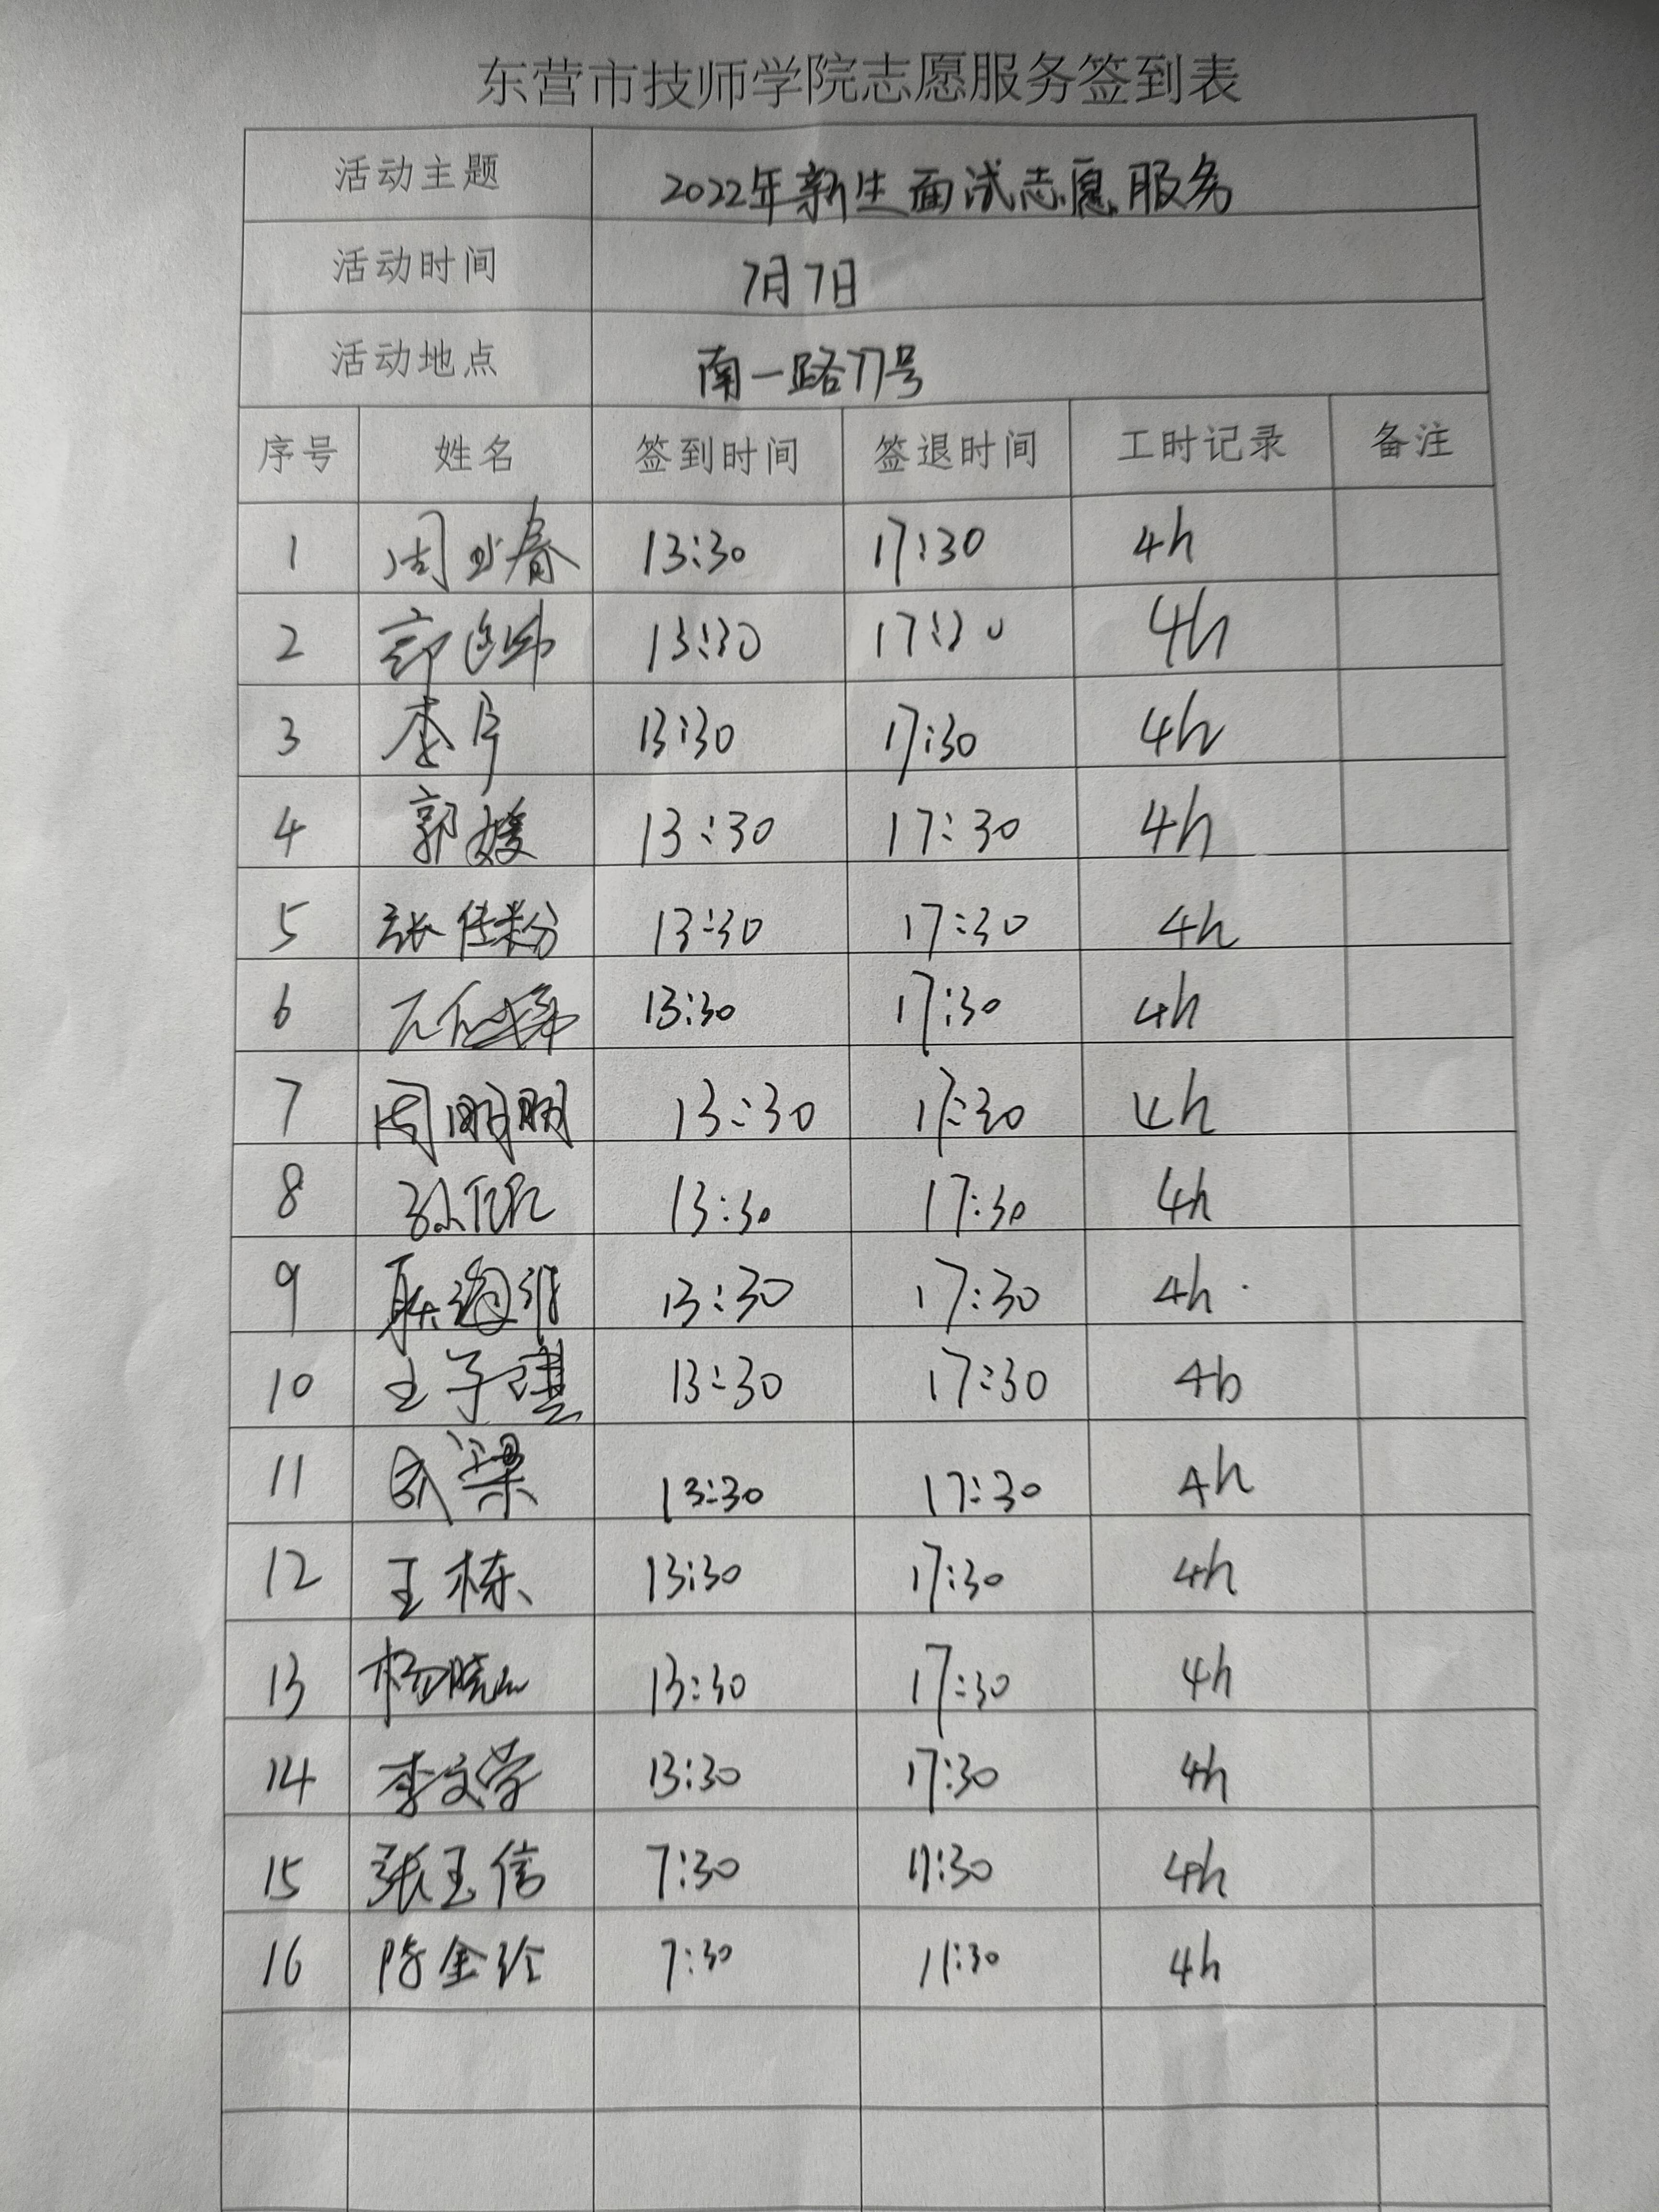 东营市技师学院志愿服务签到表
活动主题 2022年新生面试志愿服务
活动时间 7月7日
活动地点 南一路77号
序号 姓名 签到时间 签退时间 工时记录 备注
1 13:30 17:30 4h
2 13:30 17:30 4h
3 13:30 17:30 4h
4 郭媛 13:30 17:30 4h
5 张佳粉 13:30 17:30 4h
6 13:30 17:30 4h
7 周明明 13:30 17:30 4h
8 13:30 17:30 4h
9 13:30 17:30 4h
10 王子琪 13:30 17:30 4h
11 13:30 17:30 4h
12 王栋 13:30 17:30 4h
13 13:30 17:30 4h
14 李文学 13:30 17:30 4h
15 张玉信 7:30 11:30 4h
16 7:30 11:30 4h